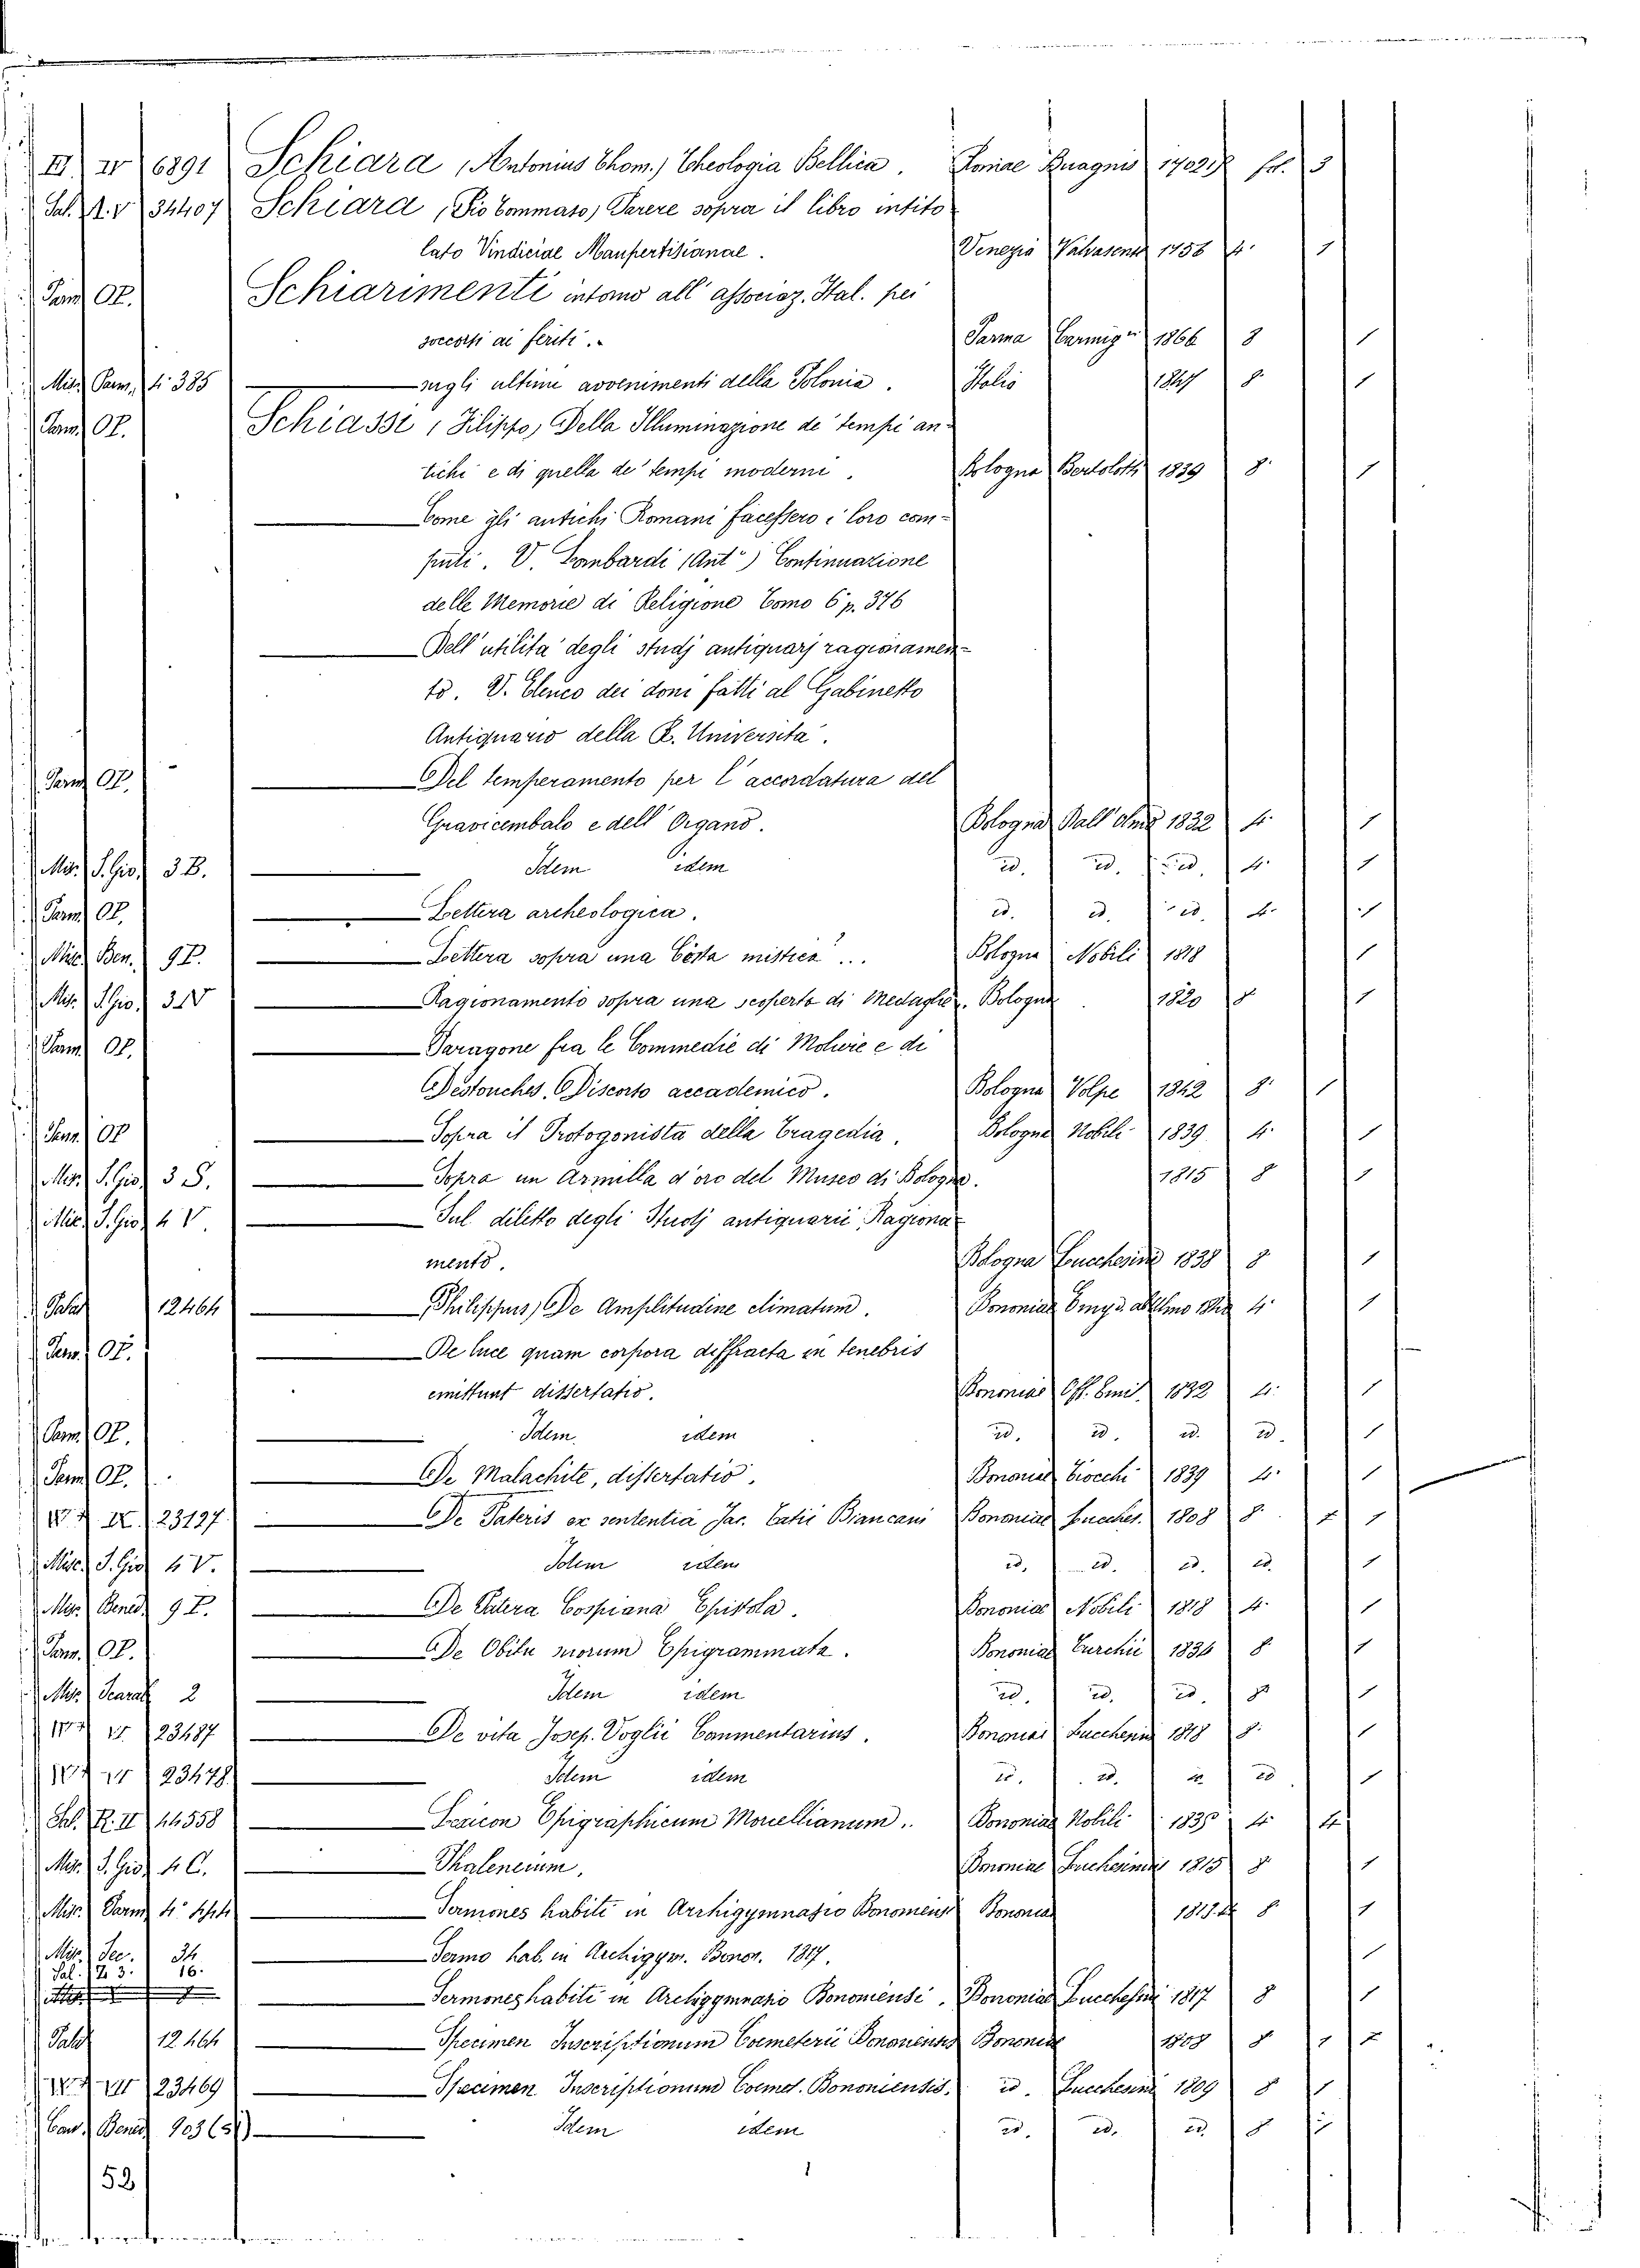 II. IV 6891 Schiara (Antonius Thom.) Theologia Bellica. Romae Buagnis 1702 fol. 3
Sal. R. V 34407 Schiara (Pio Tommaso) Parere sopra il libro intito-
lato Vindiciae Maupertisianae. Venezia Valvasense 1756 4. 1
Parm. OP. Schiarimenti intorno all' associaz. Ital. pei
soccorsi ai feriti. Parma Carmig. 1866 8 1
Misc. Parm. 4. 385 sugli ultimi avvenimenti della Polonia. Italia 1847 8. 1
Parm. OP. Schiassi (Filippo) Della Illuminazione de' tempi an-
tichi e di quella de' tempi moderni. Bologna Bortolotti 1839 8. 1
Come gli antichi Romani facessero i loro com-
puti. V. Lombardi (Ant.) Continuazione
delle Memorie di Religione Tomo 6 p. 376
Dell' utilità degli studj antiquarj ragionamen-
to. V. Elenco dei doni fatti al Gabinetto
Antiquario della R. Università.
Parm. OP. Del temperamento per l'accordatura del
Gravicembalo e dell' Organo. Bologna Dall' Olmo 1832 4. 1
Mis. S. Gio. 3 B. Idem idem id. id. id. 4. 1
Parm. OP. Lettera archeologica. id. id. id. 4. 1
Misc. Ben. 9 P. Lettera sopra una Cista mistica... Bologna Nobili 1818 1
Mis. S. Gio. 3 V Ragionamento sopra una scoperta di Medaglie. Bologna 1820 8 1
Parm. OP. Paragone fra le Commedie di Moliere e di
Destouches. Discorso accademico. Bologna Volpe 1842 8. 1
Parm. OP Sopra il Protogonista della Tragedia. Bologna Nobili 1839 4. 1
Mis. S. Gio. 3 S. Sopra un Armilla d'oro del Museo di Bologna. 1815 8 1
Mis. S. Gio. 4 V. Sul diletto degli Studj antiquarii Ragiona-
mento. Bologna Lucchesini 1838 8 1
Palat 12464 (Philippus) De Amplitudine climatum. Bononiae 4. 1
Parm. OP. De luce quam corpora diffracta in tenebris
emittunt dissertatio. Bononiae Off. Emid. 1832 4. 1
Parm. OP. Idem idem id. id. id. id. 1
Parm. OP. De Malachite, dissertatio. Bononiae Tiocchi 1839 4. 1
IX. 23197 De Pateris ex sententia Jac. Tatii Biancani Bononiae Lucches. 1808 8. 1 1
Misc. S. Gio. 4 V. Idem idem id. id. id. id. 1
Mis. Bened. 9 P. De Patera Cospiana Epistola. Bononiae Nobili 1818 4. 1
Parm. OP. De Obitu suorum Epigrammata. Bononiae Turchii 1834 8 1
Mis. Scarab. 2 Idem idem id. id. id. 8. 1
23487 De vita Josep. Voglii Commentarius. Bononiae Lucchesini 1818 8. 1
23478 Idem idem id. id. id. id 1
Sal. R. II 44558 Lexicon Epigraphicum Morcellianum. Bononiae Nobili 1835 4 4
Mis. S. Gio. 4 C. Phalenciium. Bononiae Lucchesinis 1815 8 1
Misc. Parm. 4. Sermones habiti in Archigymnasio Bonomiensi Bononiae 8. 1
Mis. Sec. 34 Sermo hab. in Archigym. Bonon. 1817. 1
Sal. 123. 16.
Sermones habiti in Archigymnasio Bononiensi. Bononiae Lucchesini 1817 8 1
Palat 12464 Specimen Inscriptionum Coemeterii Bononiensis Bononiae 1809 8 1
23469 Specimen Inscriptionum Coemet. Bononiensis. id. Lucchesini 1809 8 1
Cas. Bened. 903 Idem idem id. id. id. 8 1
1
52